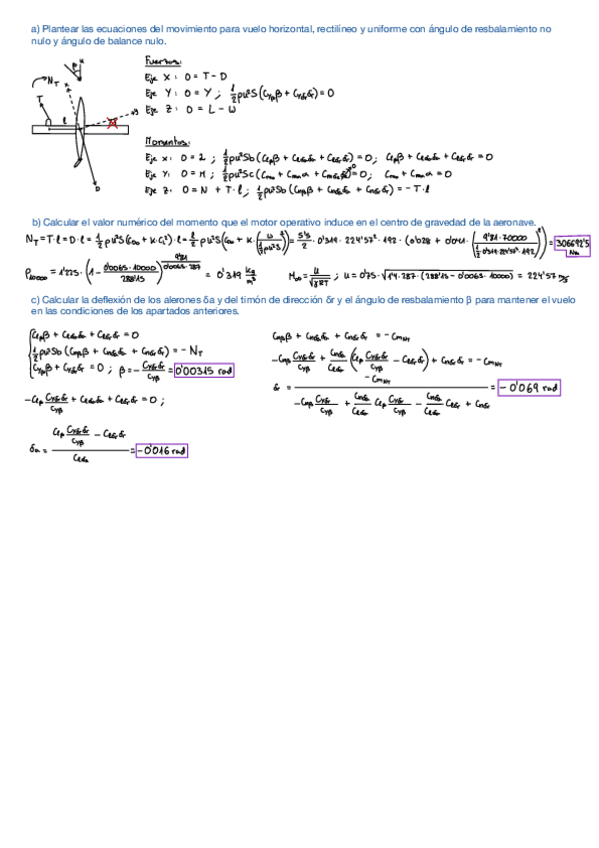 a) Plantear las ecuaciones del movimiento para vuelo horizontal, rectilíneo y uniforme con ángulo de resbalamiento no
nulo y ángulo de balance nulo.
Fuerzas:
Eje X: 0 = T - D
Eje Y: 0 = Y ; ½ρu²S(Cyββ + Cyδrδr) = 0
Eje Z: 0 = L - W
Momentos:
Eje x: 0 = L ; ½ρu²Sb(Clββ + Clδaδa + Clδrδr) = 0 ; Clββ + Clδaδa + Clδrδr = 0
Eje Y: 0 = M ; ½ρu²Sc(Cm0 + Cmαα + Cmδeδe) = 0 ; Cm0 + Cmαα = 0
Eje Z: 0 = N + T·l ; ½ρu²Sb(Cnββ + Cnδaδa + Cnδrδr) = -T·l
b) Calcular el valor numérico del momento que el motor operativo induce en el centro de gravedad de la aeronave.
N_T = T·l = D·l = ½ρu²S(C_D0 + K·C_L²)·l = l/2 ρu²S(C_D0 + K·(W/(½ρu²S))²) = 5'5/2 · 0'319 · 224'57² · 192 · (0'028 + 0'041 · (9'81·70000/(½·0'319·224'57²·192))²) = 306692'5 Nm
ρ10000 = 1'225 · (1 - 0'0065·10000/288'15)^(9'81/(0'0065·287)) = 0'319 kg/m³
M∞ = u/√γRT ; u = 0'75·√(1'4·287·(288'15 - 0'0065·10000)) = 224'57 m/s
c) Calcular la deflexión de los alerones δa y del timón de dirección δr y el ángulo de resbalamiento β para mantener el vuelo
en las condiciones de los apartados anteriores.
Clββ + Clδaδa + Clδrδr = 0
½ρu²Sb(Cnββ + Cnδaδa + Cnδrδr) = -N_T
Cyββ + Cyδrδr = 0 ; β = -Cyδrδr/Cyβ = 0'00315 rad
-Clβ Cyδrδr/Cyβ + Clδaδa + Clδrδr = 0 ;
δa = (Clβ Cyδrδr/Cyβ - Clδrδr)/Clδa = -0'016 rad
Cnββ + Cnδaδa + Cnδrδr = -CmNT
-Cnβ Cyδrδr/Cyβ + Cnδa/Clδa (Clβ Cyδrδr/Cyβ - Clδrδr) + Cnδrδr = -CmNT
δr = -CmNT/(-Cnβ Cyδr/Cyβ + Cnδa/Clδa Clβ Cyδr/Cyβ - Cnδa/Clδa Clδr + Cnδr) = -0'069 rad